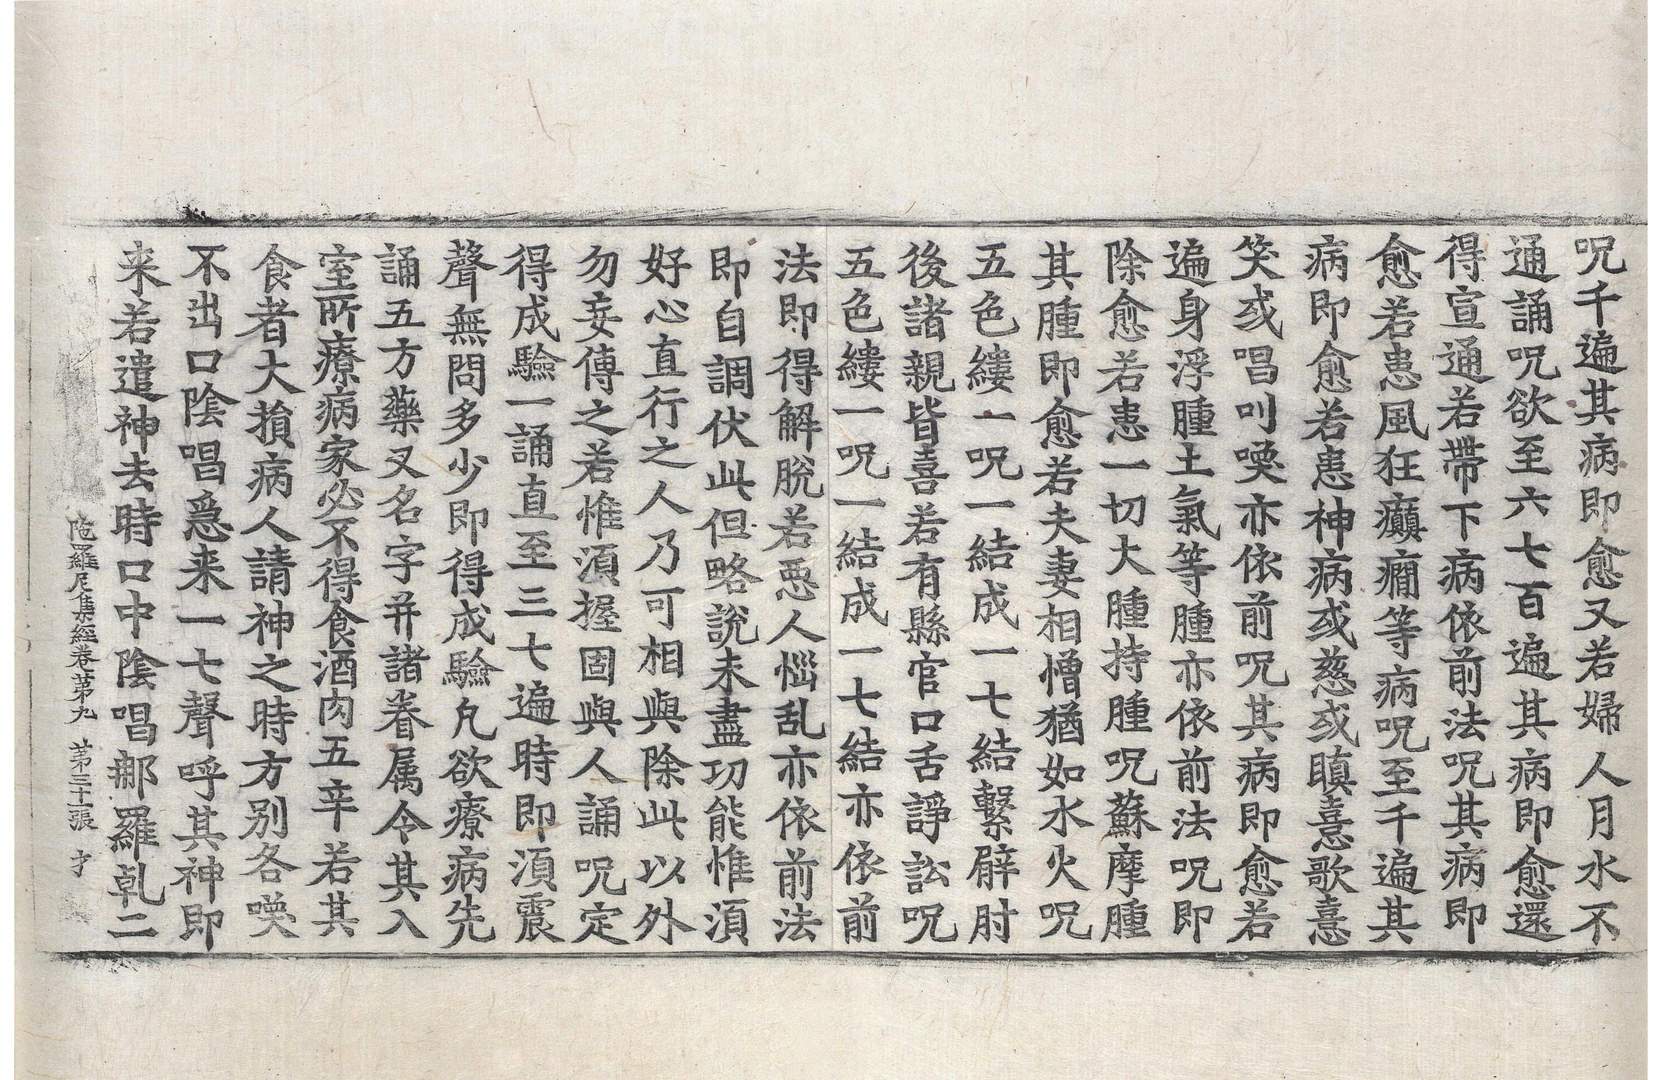 呪千遍其病即愈又若婦人月水不
通誦呪欲至六七百遍其病即愈還
得宣通若帶下病依前法呪其病即
愈若患風狂癲癎等病呪至千遍其
病即愈若患神病或慈或瞋憙歌憙
笑或唱叫喚亦依前呪其病即愈若
遍身浮腫土氣等腫亦依前法呪即
除愈若患一切大腫持腫呪蘇摩腫
其腫即愈若夫妻相憎猶如水火呪
五色縷一呪一結成一七結繫臂肘
後諸親皆喜若有縣官口舌諍訟呪
五色縷一呪一結成一七結亦依前
法即得解脫若惡人惱乱亦依前法
即自調伏此但略說未盡功能惟湏
好心直行之人乃可相與除此以外
勿妄傳之若惟湏握固與人誦呪定
得成驗一誦直至三七遍時即湏震
聲無問多少即得成驗凢欲療病先
誦五方藥叉名字并諸眷属令其入
室所療病家必不得食酒肉五辛若其
食者大損病人請神之時方別各喚
不出口陰唱爲来一七聲呼其神即
来若遣神去時口中陰唱郍羅乹二
陁羅尼集經卷第九 第三十一張 才